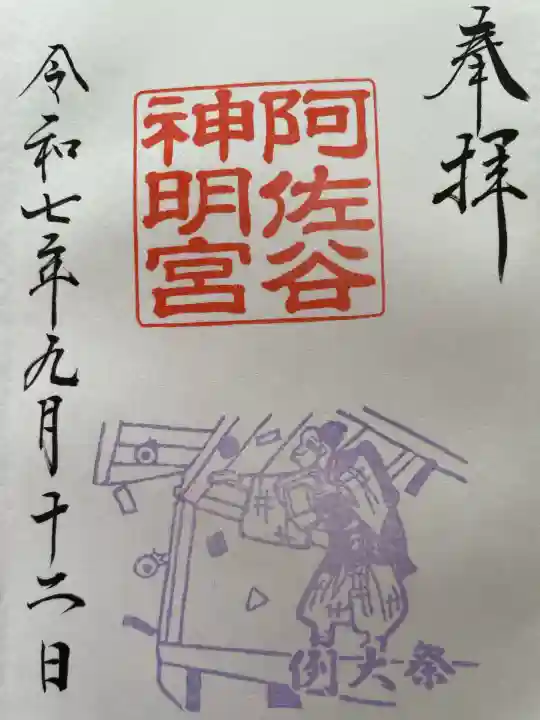 奉拝
阿佐谷
神明宮
令和七年九月十二日
例大祭